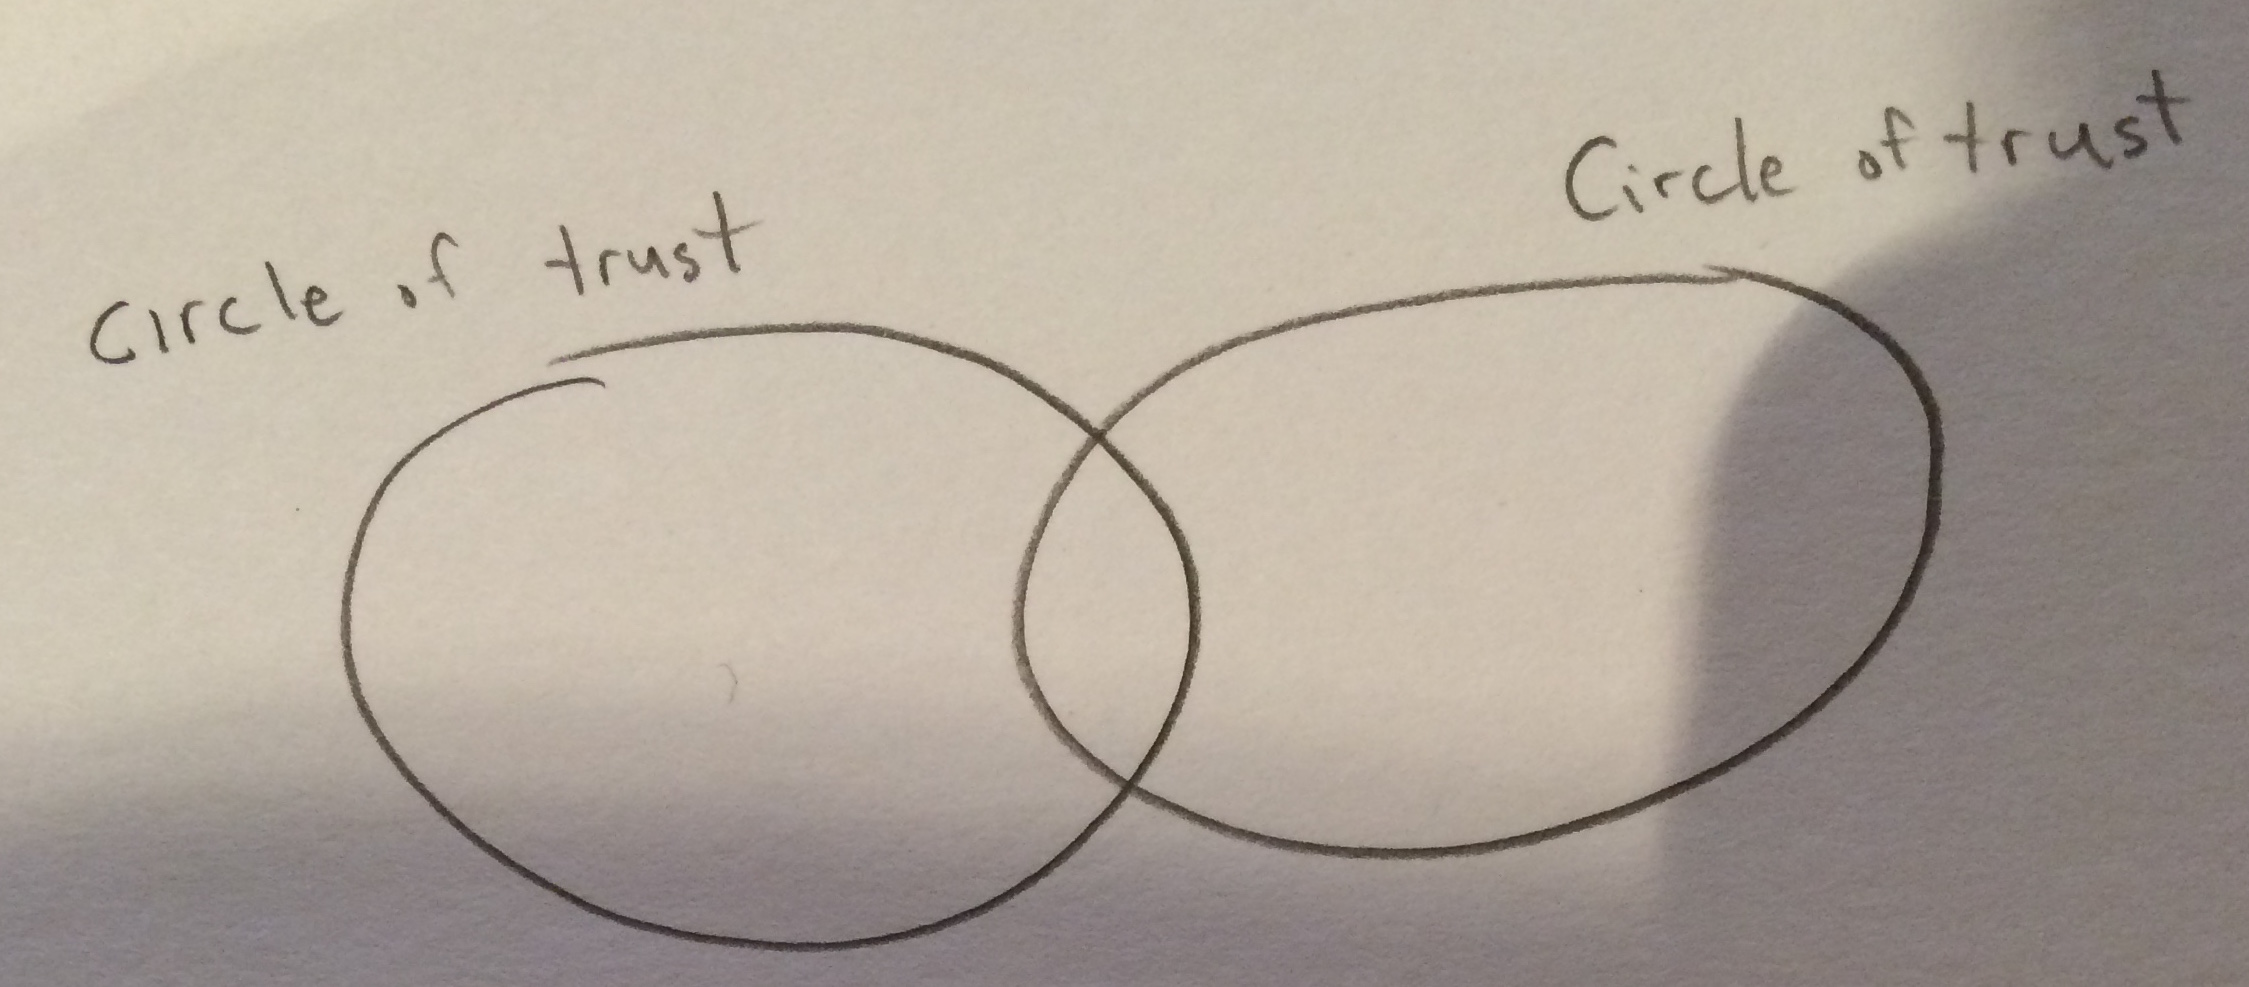 Circle of trust
Circle of trust